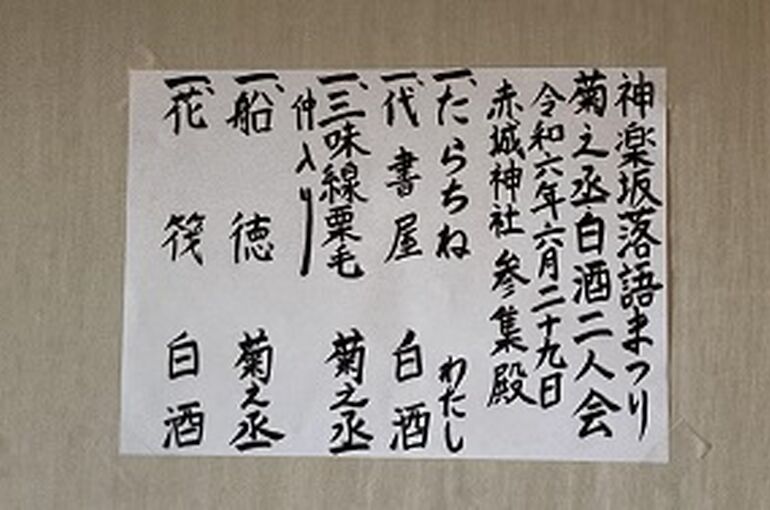 神楽坂落語まつり
菊之丞白酒二人会
令和六年六月二十九日
赤城神社 参集殿
一、たらちね わたし
一、代書屋 白酒
一、三味線栗毛 菊之丞
仲入り
一、船徳 菊之丞
一、花筏 白酒